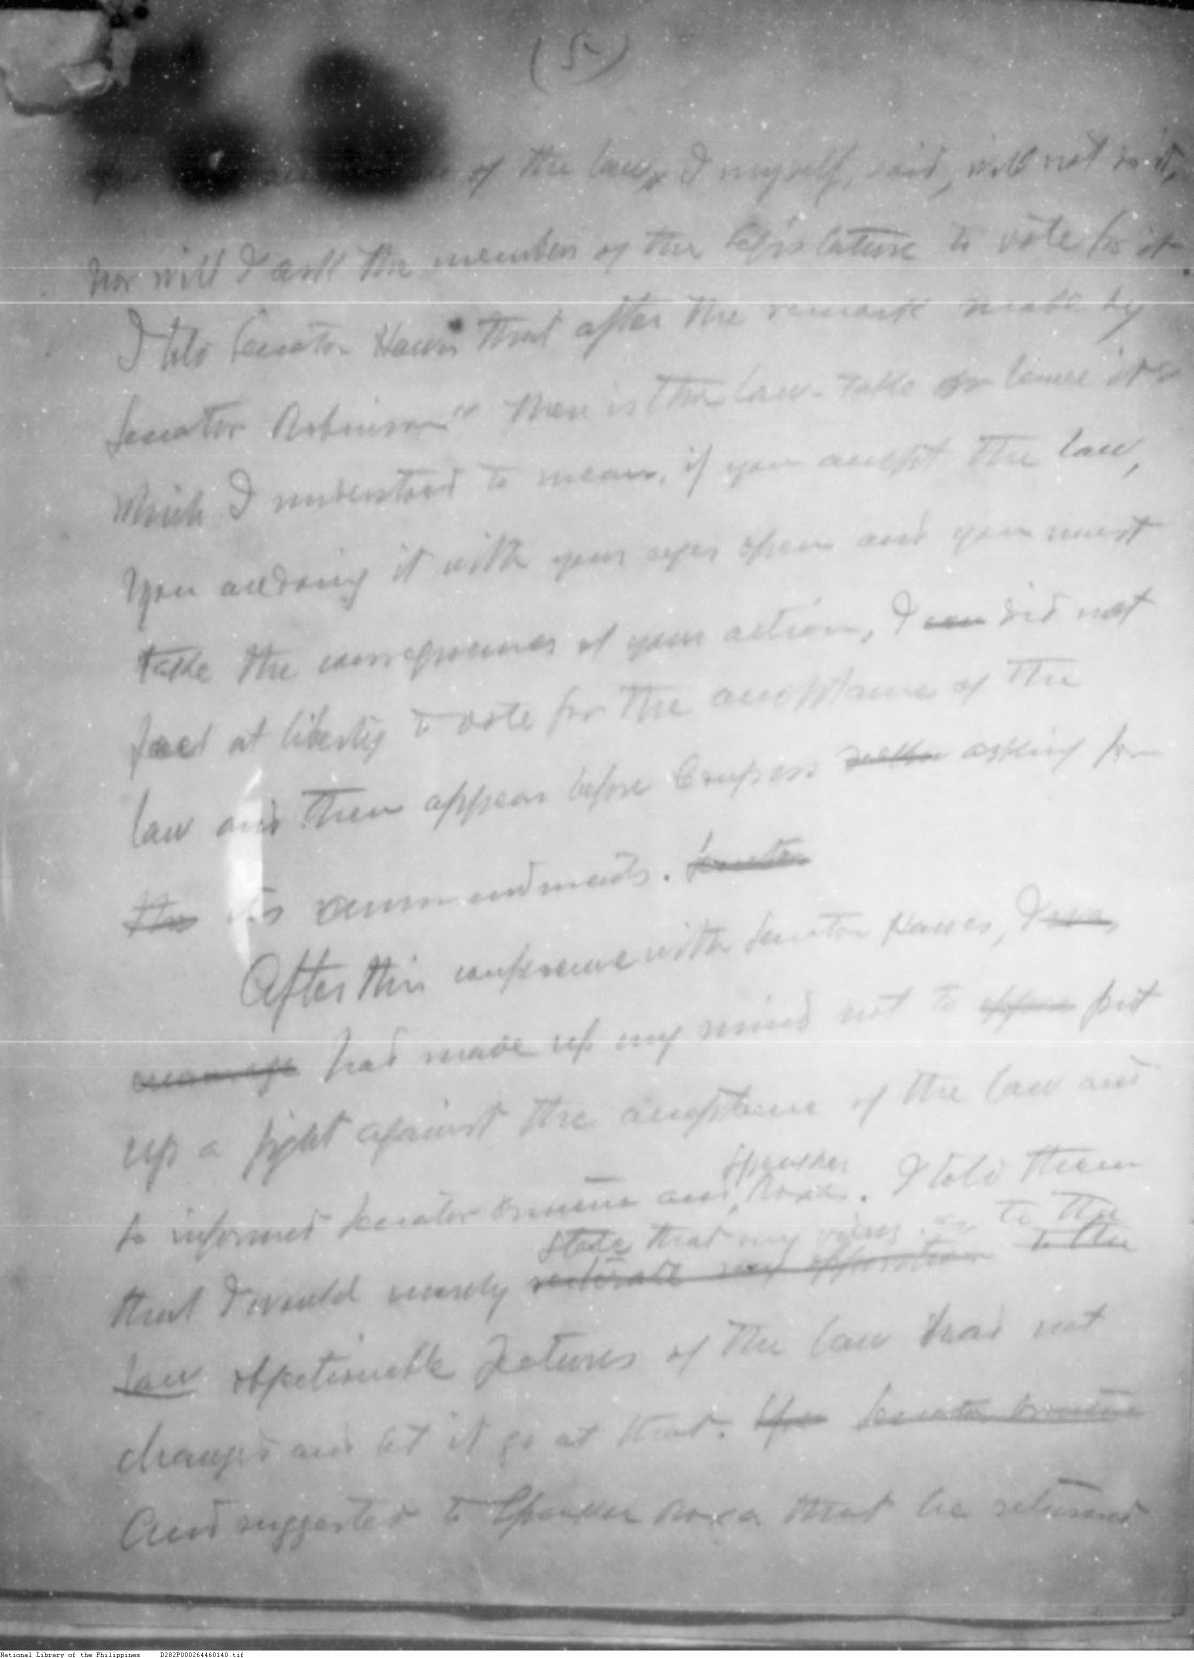 (5)
of the law, I myself, said, will not do it,
nor will I ask the members of the Legislature to vote for it.
I told Senator Hawes that after the remark made by
Senator Robinson "There is the law - take or leave it"
which I understood to mean, if you accept the law,
you are doing it with your eyes open and you must
take the consequences of your action, I did not
feel at liberty to vote for the acceptance of the
law and then appear before Congress asking for
its ammendments. Senator
After this conference with Senator Hawes, I was
had made up my mind not to put
up a fight against the acceptance of the law and
so informed Senator Osmeña and Speaker Roxas. I told them
that I would merely state that my views as to the
reiterate my opposition to the
law objectionable features of the law had not
changed and let it go at that. Senator Osmeña
And suggested to Speaker Roxas that he returned
National Library of the Philippines D282P000264460140.tif